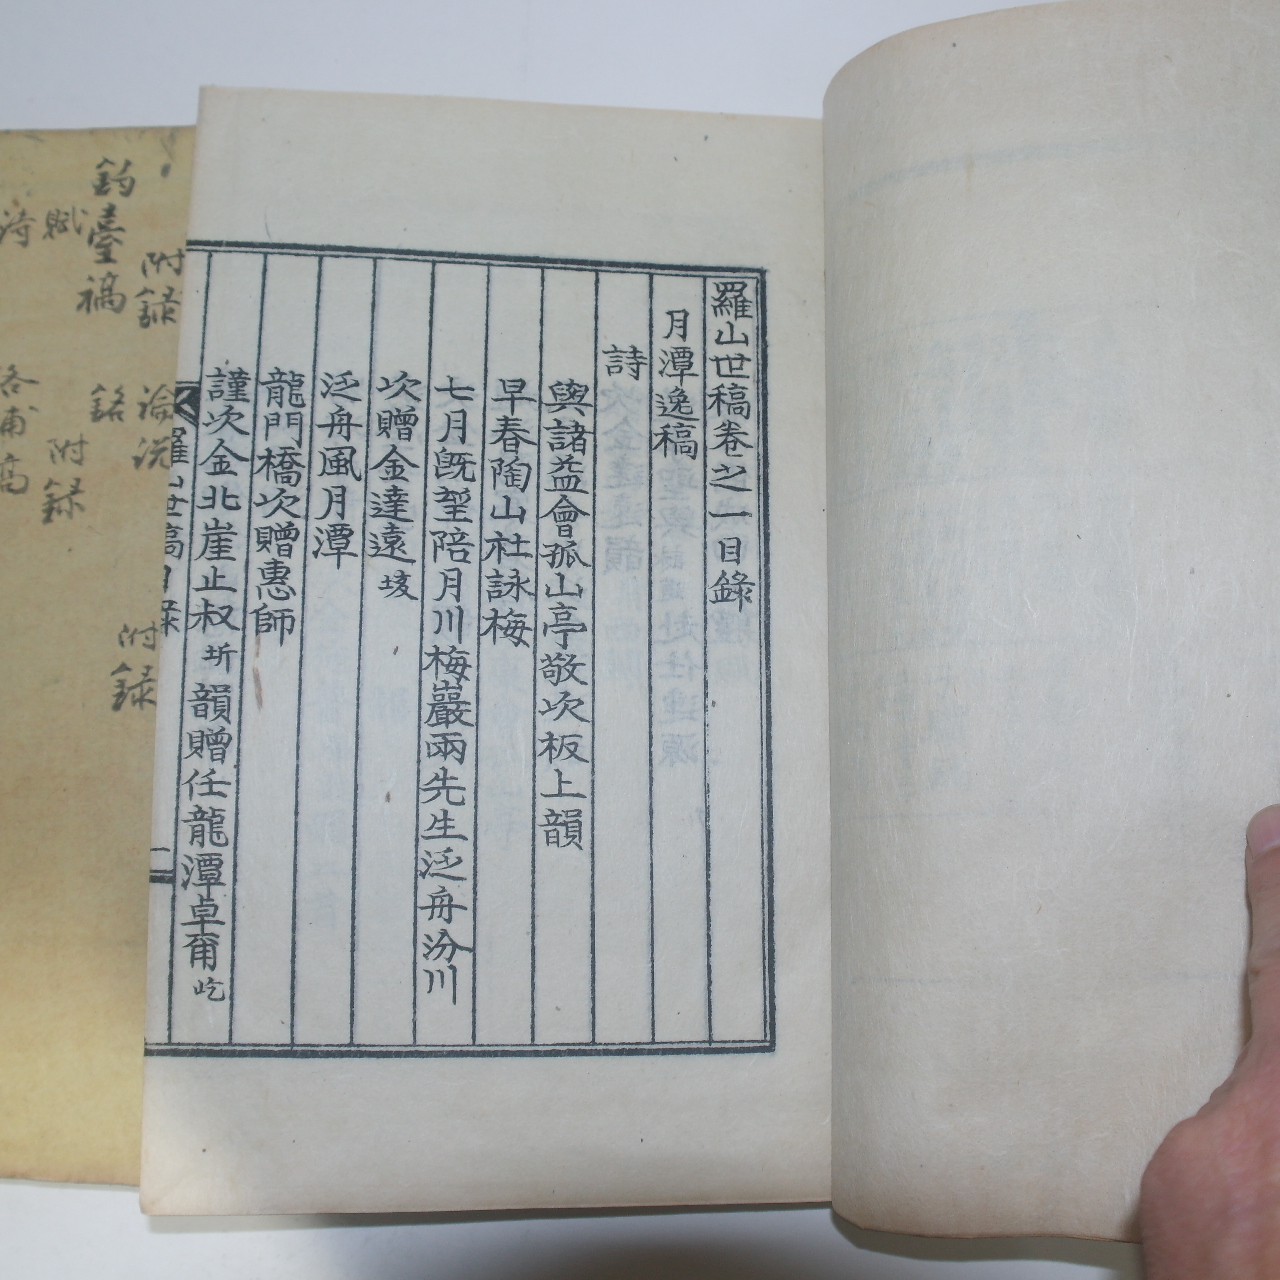 羅山世稿卷之一目錄
月潭逸稿
詩
與諸益會孤山亭敬次板上韻
早春陶山社詠梅
七月旣望陪月川梅巖兩先生泛舟汾川
次贈金達遠垓
泛舟風月潭
龍門橋次贈惠師
謹次金北崖止叔圻韻贈任龍潭卓爾屹
羅山世稿目錄
一
附錄
論說
附錄
釣臺稿
銘
賦
附錄
詩